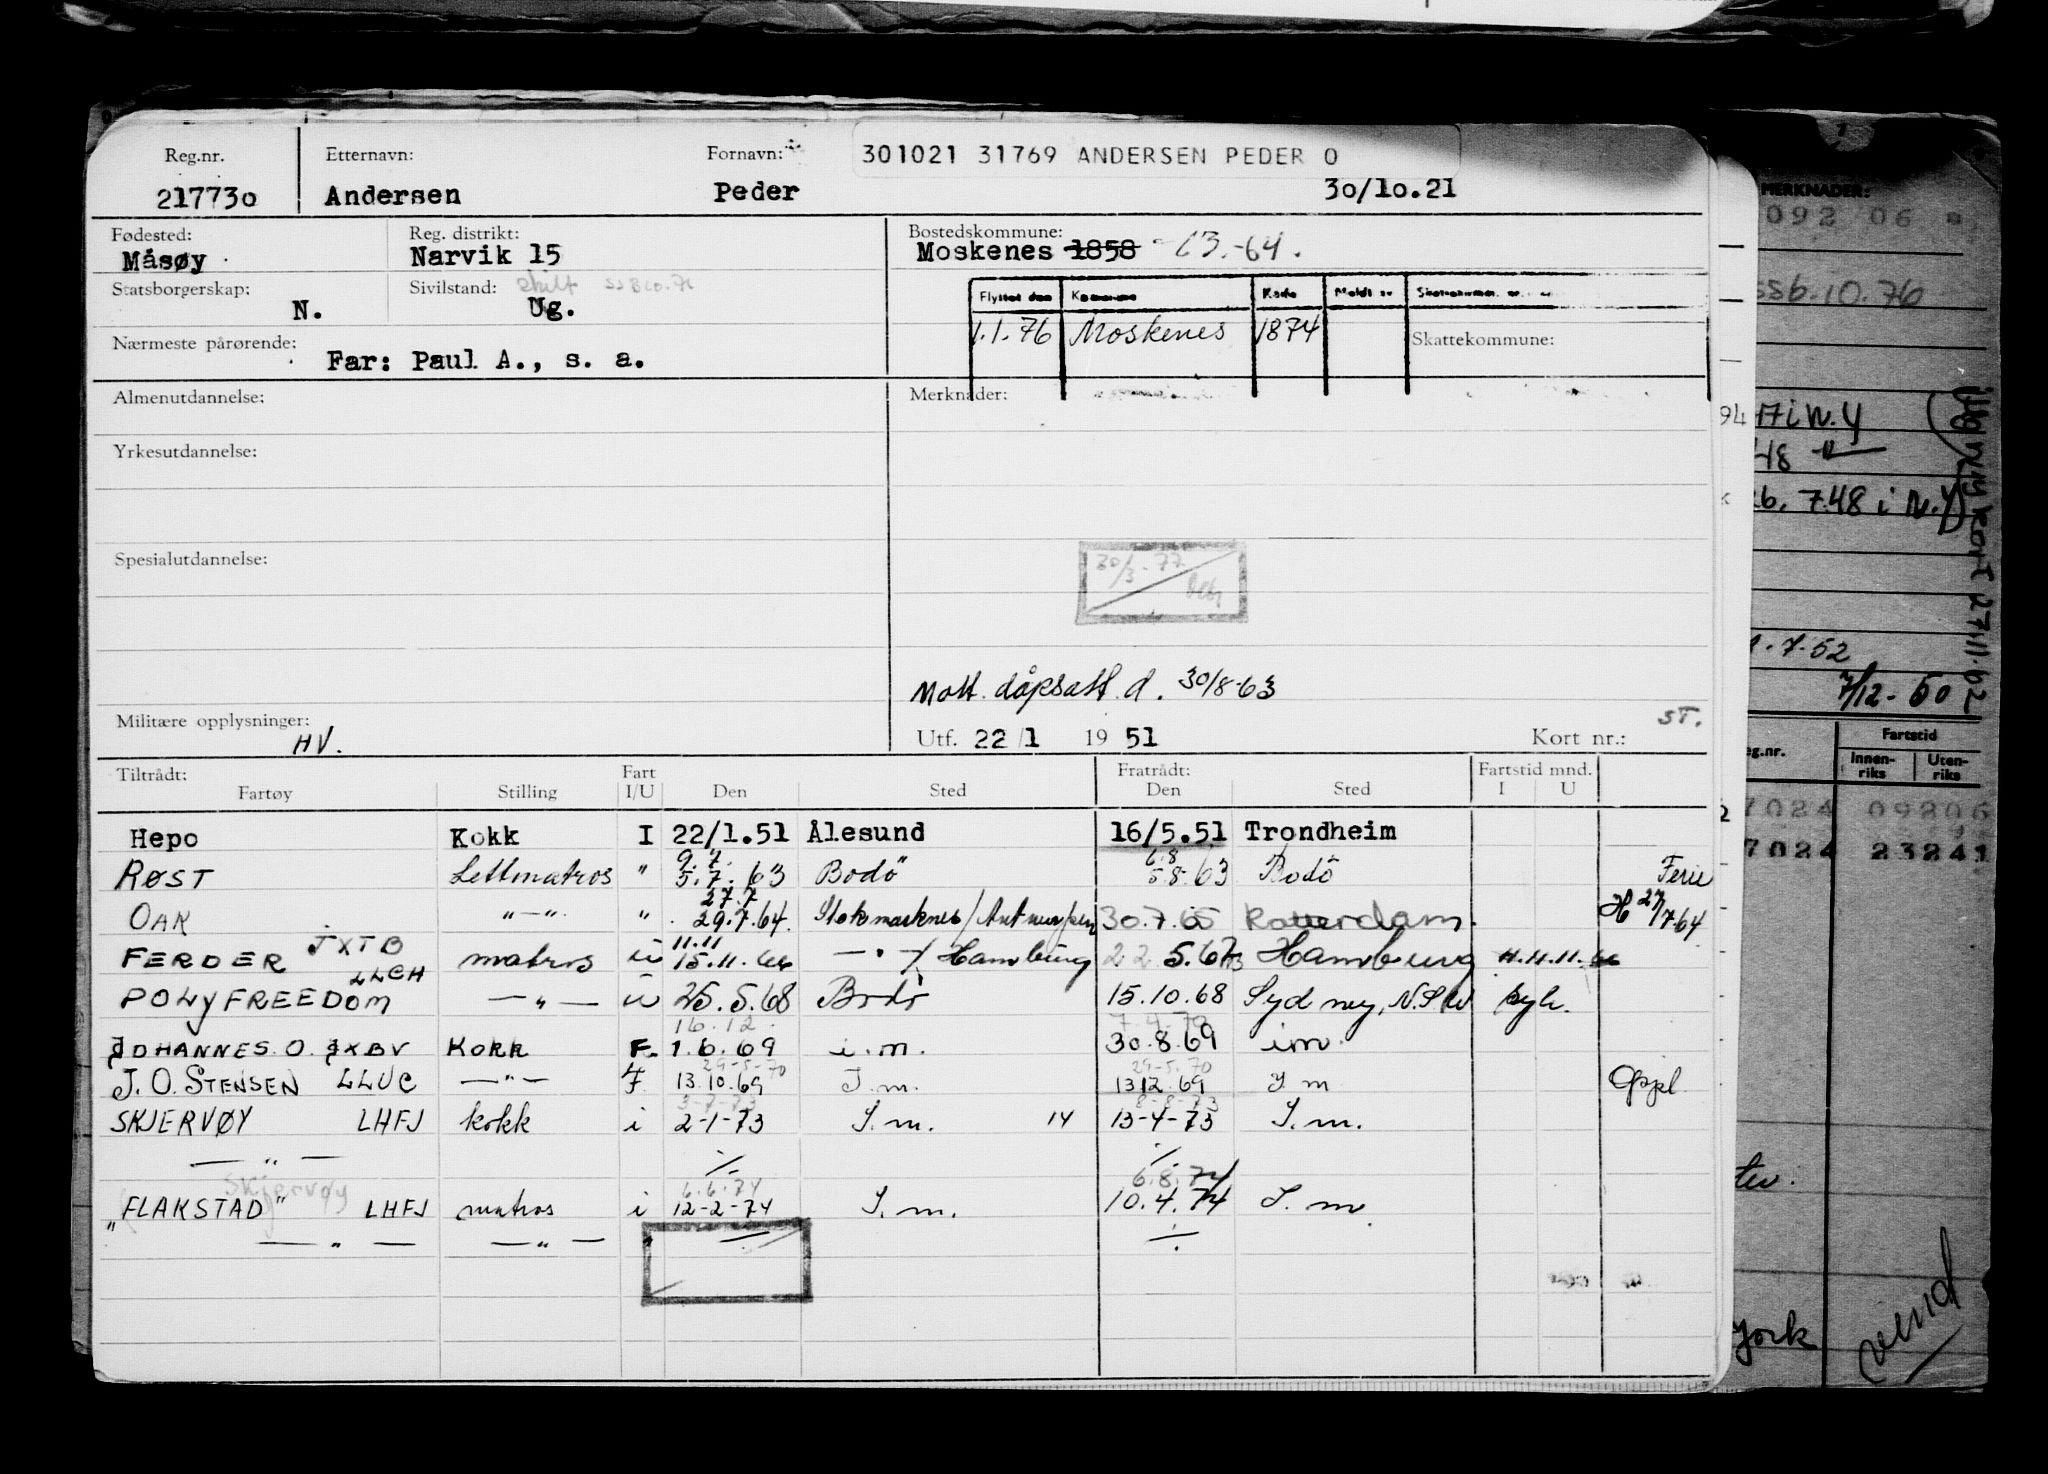 Reg.nr. Etternavn: Fornavn: 301021 31769 ANDERSEN PEDER O
217730 Andersen Peder 30/10.21
Fødested: Reg. distrikt: Bostedskommune:
Måsøy Narvik 15 Moskenes 1858 - 63.-64.
Statsborgerskap: Sivilstand: skilt
N. Ug.
Flyttet den Kommune Kode Meldt sv Skattekommune nr.
1.1.76 Moskenes 1874 Skattekommune:
Nærmeste pårørende:
Far: Paul A., s. a.
Almenutdannelse: Merknader:
Yrkesutdannelse:
Spesialutdannelse:
30/3-77
Mott. dåpsatt. d. 30/8-63
Militære opplysninger: HV.
Utf. 22/1 1951 Kort nr.: ST.
Tiltrådt: Fart Fratrådt: Fartstid mnd.
Fartøy Stilling I/U Den Sted Den Sted I U
Hepo Kokk I 22/1.51 Ålesund 16/5.51 Trondheim
9.7. 6.8
RØST Lettmatros " 5.7.63 Bodö 5.8.63 Bodö Ferie
27.7
OAK "—" " 29.7.64. Stokmarknes/Antwerpen 30.7.65 Rotterdam. H 27/7.64
JXTB 11.11
FERDER matros u 15.11.66 —"—/Hamburg 22.5.67 Hamburg 11.11.66
LLCH
POLYFREEDOM —"— u 25.5.68 Bodö 15.10.68 Sydney, N.S.W syk.
16.12. 7.4.70
JOHANNES O. JXBV KOKK F. 1.6.69 i.m. 30.8.69 im.
29-5-70 29-5.70
J.O. STENSEN LLUC —"— F 13.10.69 I.m. 1312.69 I m Oppl.
3-7-73 8-8-73
SKJERVØY LHFJ kokk i 2-1-73 I.m. 14 13-4-73 I.m.
—"—
Skjervøy 6.6.74 6.8.74
"FLAKSTAD" LHFJ matros i 12-2-74 I.m. 10.4.74 I.m
—"— —"— "
MERKNADER:
092 06
ssb.10.76
94
47 i N.Y
48 —"—
26.7.48 i N.Y
Ny kort 27.11.62
1.7.52
7/12-50
eg.nr. Fartstid
Innen-riks Uten-riks
7024 09206
7024 23241
York
vend